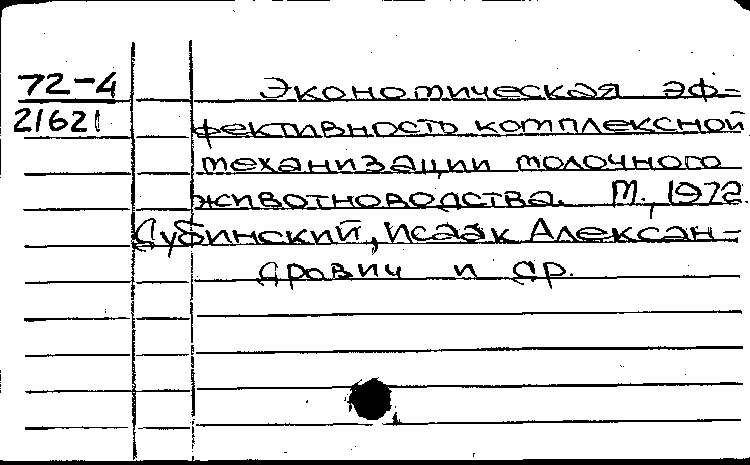 72-4
21621
Экономическая эф=
фективность комплексной
механизации молочного
животноводства. М., 1972.
Дубинский, Исаак Алексан-
дрович и др.